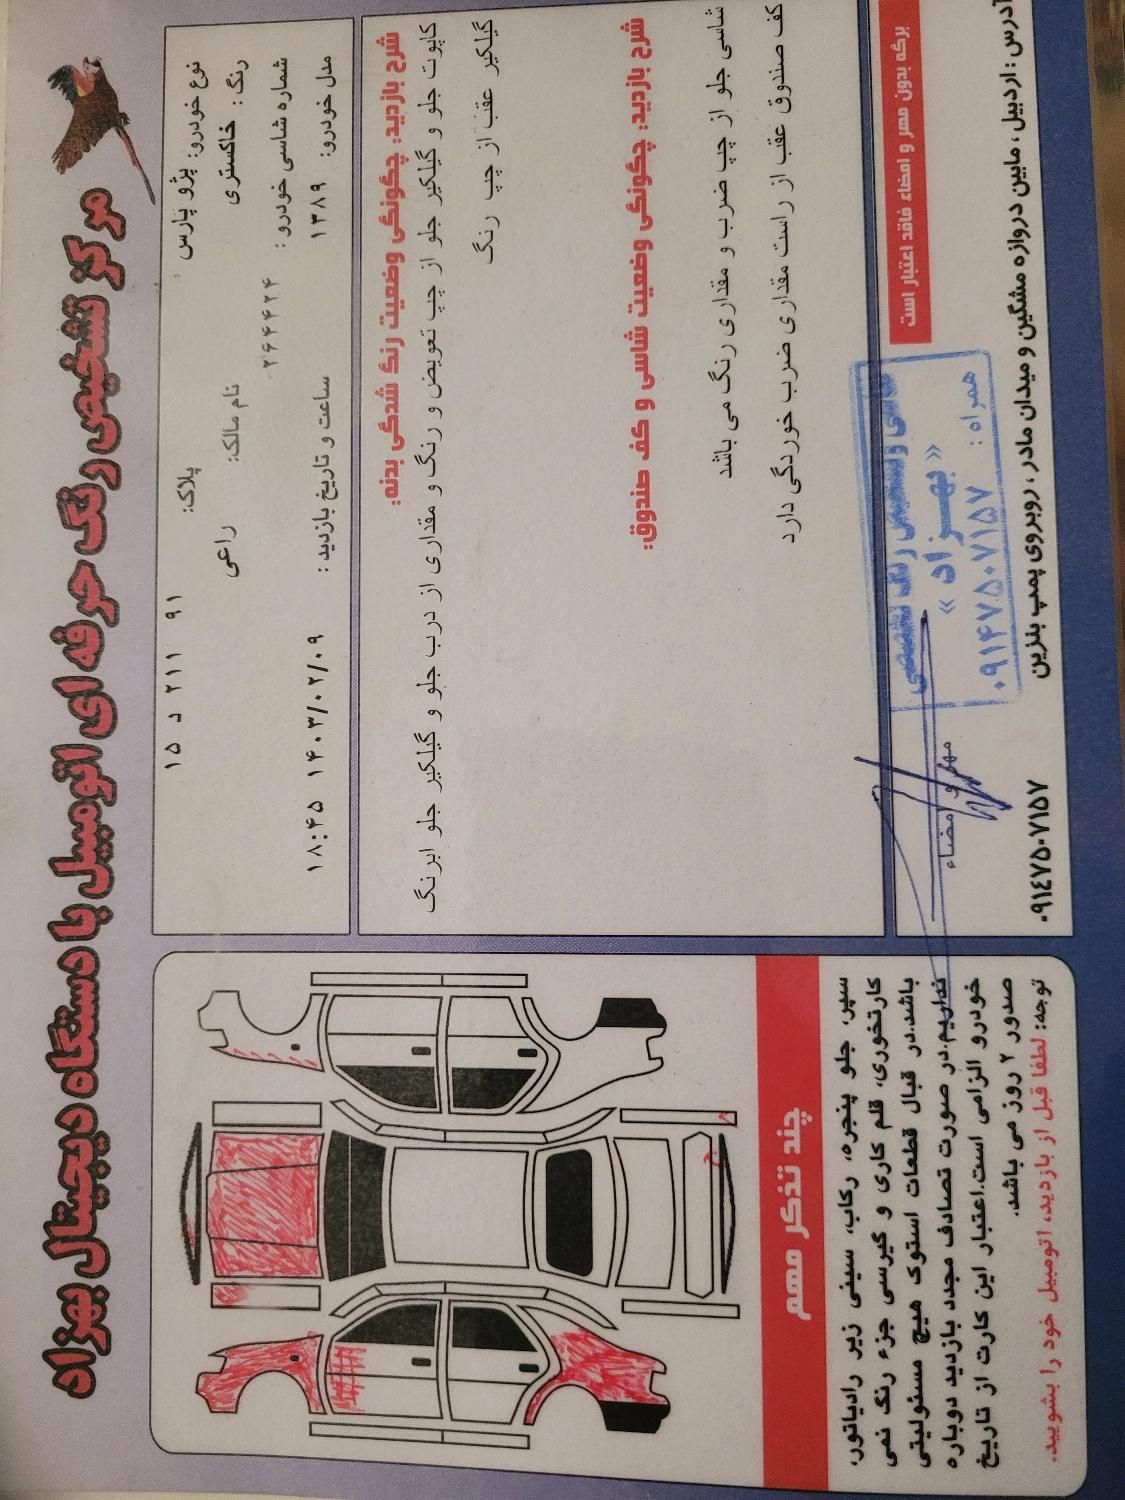 مرکز تشخیص رنگ حرفه ای اتومبیل با دستگاه دیجیتال بهزاد
نوع خودرو: پژو پارس
پلاک: ۱۵ د ۲۱۱ ۹۱
رنگ: خاکستری
نام مالک: راعی
شماره شاسی خودرو: ۲۶۴۴۲۴
مدل خودرو: ۱۳۸۹
ساعت و تاریخ بازدید: ۱۴۰۳/۰۲/۰۹ ۱۸:۴۵
شرح بازدید: چگونگی وضعیت رنگ شدگی بدنه:
کاپوت جلو و گیلگیر جلو از چپ تعویض و رنگ و مقداری از درب جلو و گیلگیر جلو ابرنگ
گیلگیر عقب از چپ رنگ
شرح بازدید: چگونگی وضعیت شاسی و کف صندوق:
شاسی جلو از چپ ضرب و مقداری رنگ می باشد
کف صندوق عقب از راست مقداری ضرب خوردگی دارد
برگه بدون مهر و امضاء فاقد اعتبار است
رنگ تشخیص
« بهزاد »
همراه: ۰۹۱۴۷۵۰۷۱۵۷
مهر و امضاء
آدرس: اردبیل، مابین دروازه مشگین و میدان مادر، روبروی پمپ بنزین
۰۹۱۴۷۵۰۷۱۵۷
چند تذکر مهم
سپر، جلو پنجره، رکاب، سینی زیر رادیاتور،
کارتخوری، قلم کاری و گیرسی جزء رنگ نمی
باشد.در قبال قطعات استوک هیچ مسئولیتی
نداریم.در صورت تصادف مجدد بازدید دوباره
خودرو الزامی است.اعتبار این کارت از تاریخ
صدور ۲ روز می باشد.
توجه: لطفا قبل از بازدید، اتومبیل خود را بشویید.